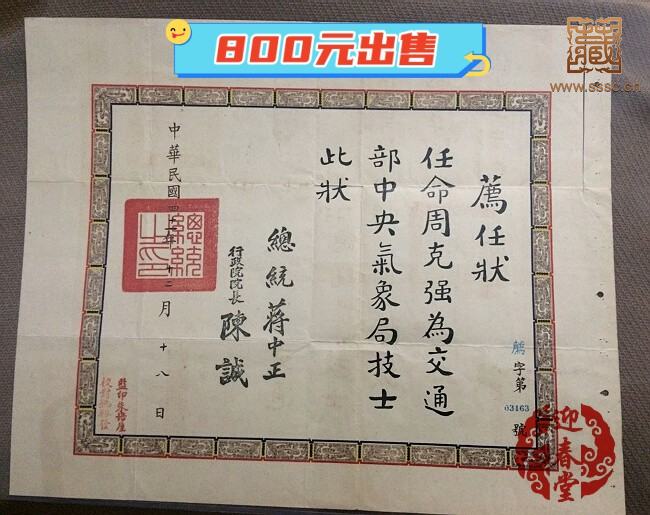 800元出售
藏
www.sssc.cn
薦任狀
任命周克强為交通
部中央氣象局技士
此狀
總統蔣中正
行政院院長 陳誠
中華民國四十一年十二月十八日
總統之印
薦字第
03163
號
監印
校對
迎春堂